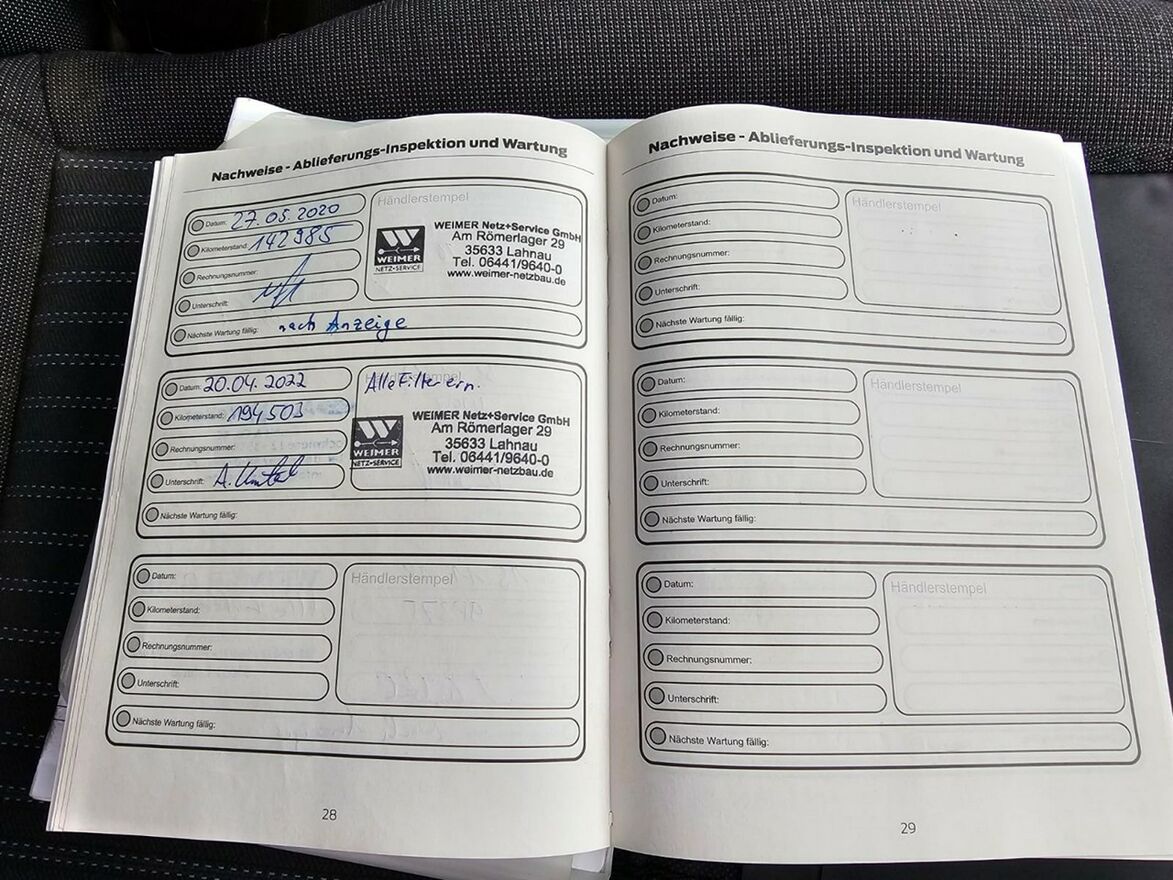 Nachweise - Ablieferungs-Inspektion und Wartung
Datum: 27.05.2020
Kilometerstand: 142985
Rechnungsnummer:
Unterschrift:
Nächste Wartung fällig: nach Anzeige
Händlerstempel
WEIMER
NETZ-SERVICE
WEIMER Netz+Service GmbH
Am Römerlager 29
35633 Lahnau
Tel. 06441/9640-0
www.weimer-netzbau.de
Datum: 20.04.2022
Kilometerstand: 194503
Rechnungsnummer:
Unterschrift:
Nächste Wartung fällig:
Händlerstempel
Alle Filter ern.
WEIMER
NETZ-SERVICE
WEIMER Netz+Service GmbH
Am Römerlager 29
35633 Lahnau
Tel. 06441/9640-0
www.weimer-netzbau.de
Datum:
Kilometerstand:
Rechnungsnummer:
Unterschrift:
Nächste Wartung fällig:
Händlerstempel
28
Nachweise - Ablieferungs-Inspektion und Wartung
Datum:
Kilometerstand:
Rechnungsnummer:
Unterschrift:
Nächste Wartung fällig:
Händlerstempel
Datum:
Kilometerstand:
Rechnungsnummer:
Unterschrift:
Nächste Wartung fällig:
Händlerstempel
Datum:
Kilometerstand:
Rechnungsnummer:
Unterschrift:
Nächste Wartung fällig:
Händlerstempel
29